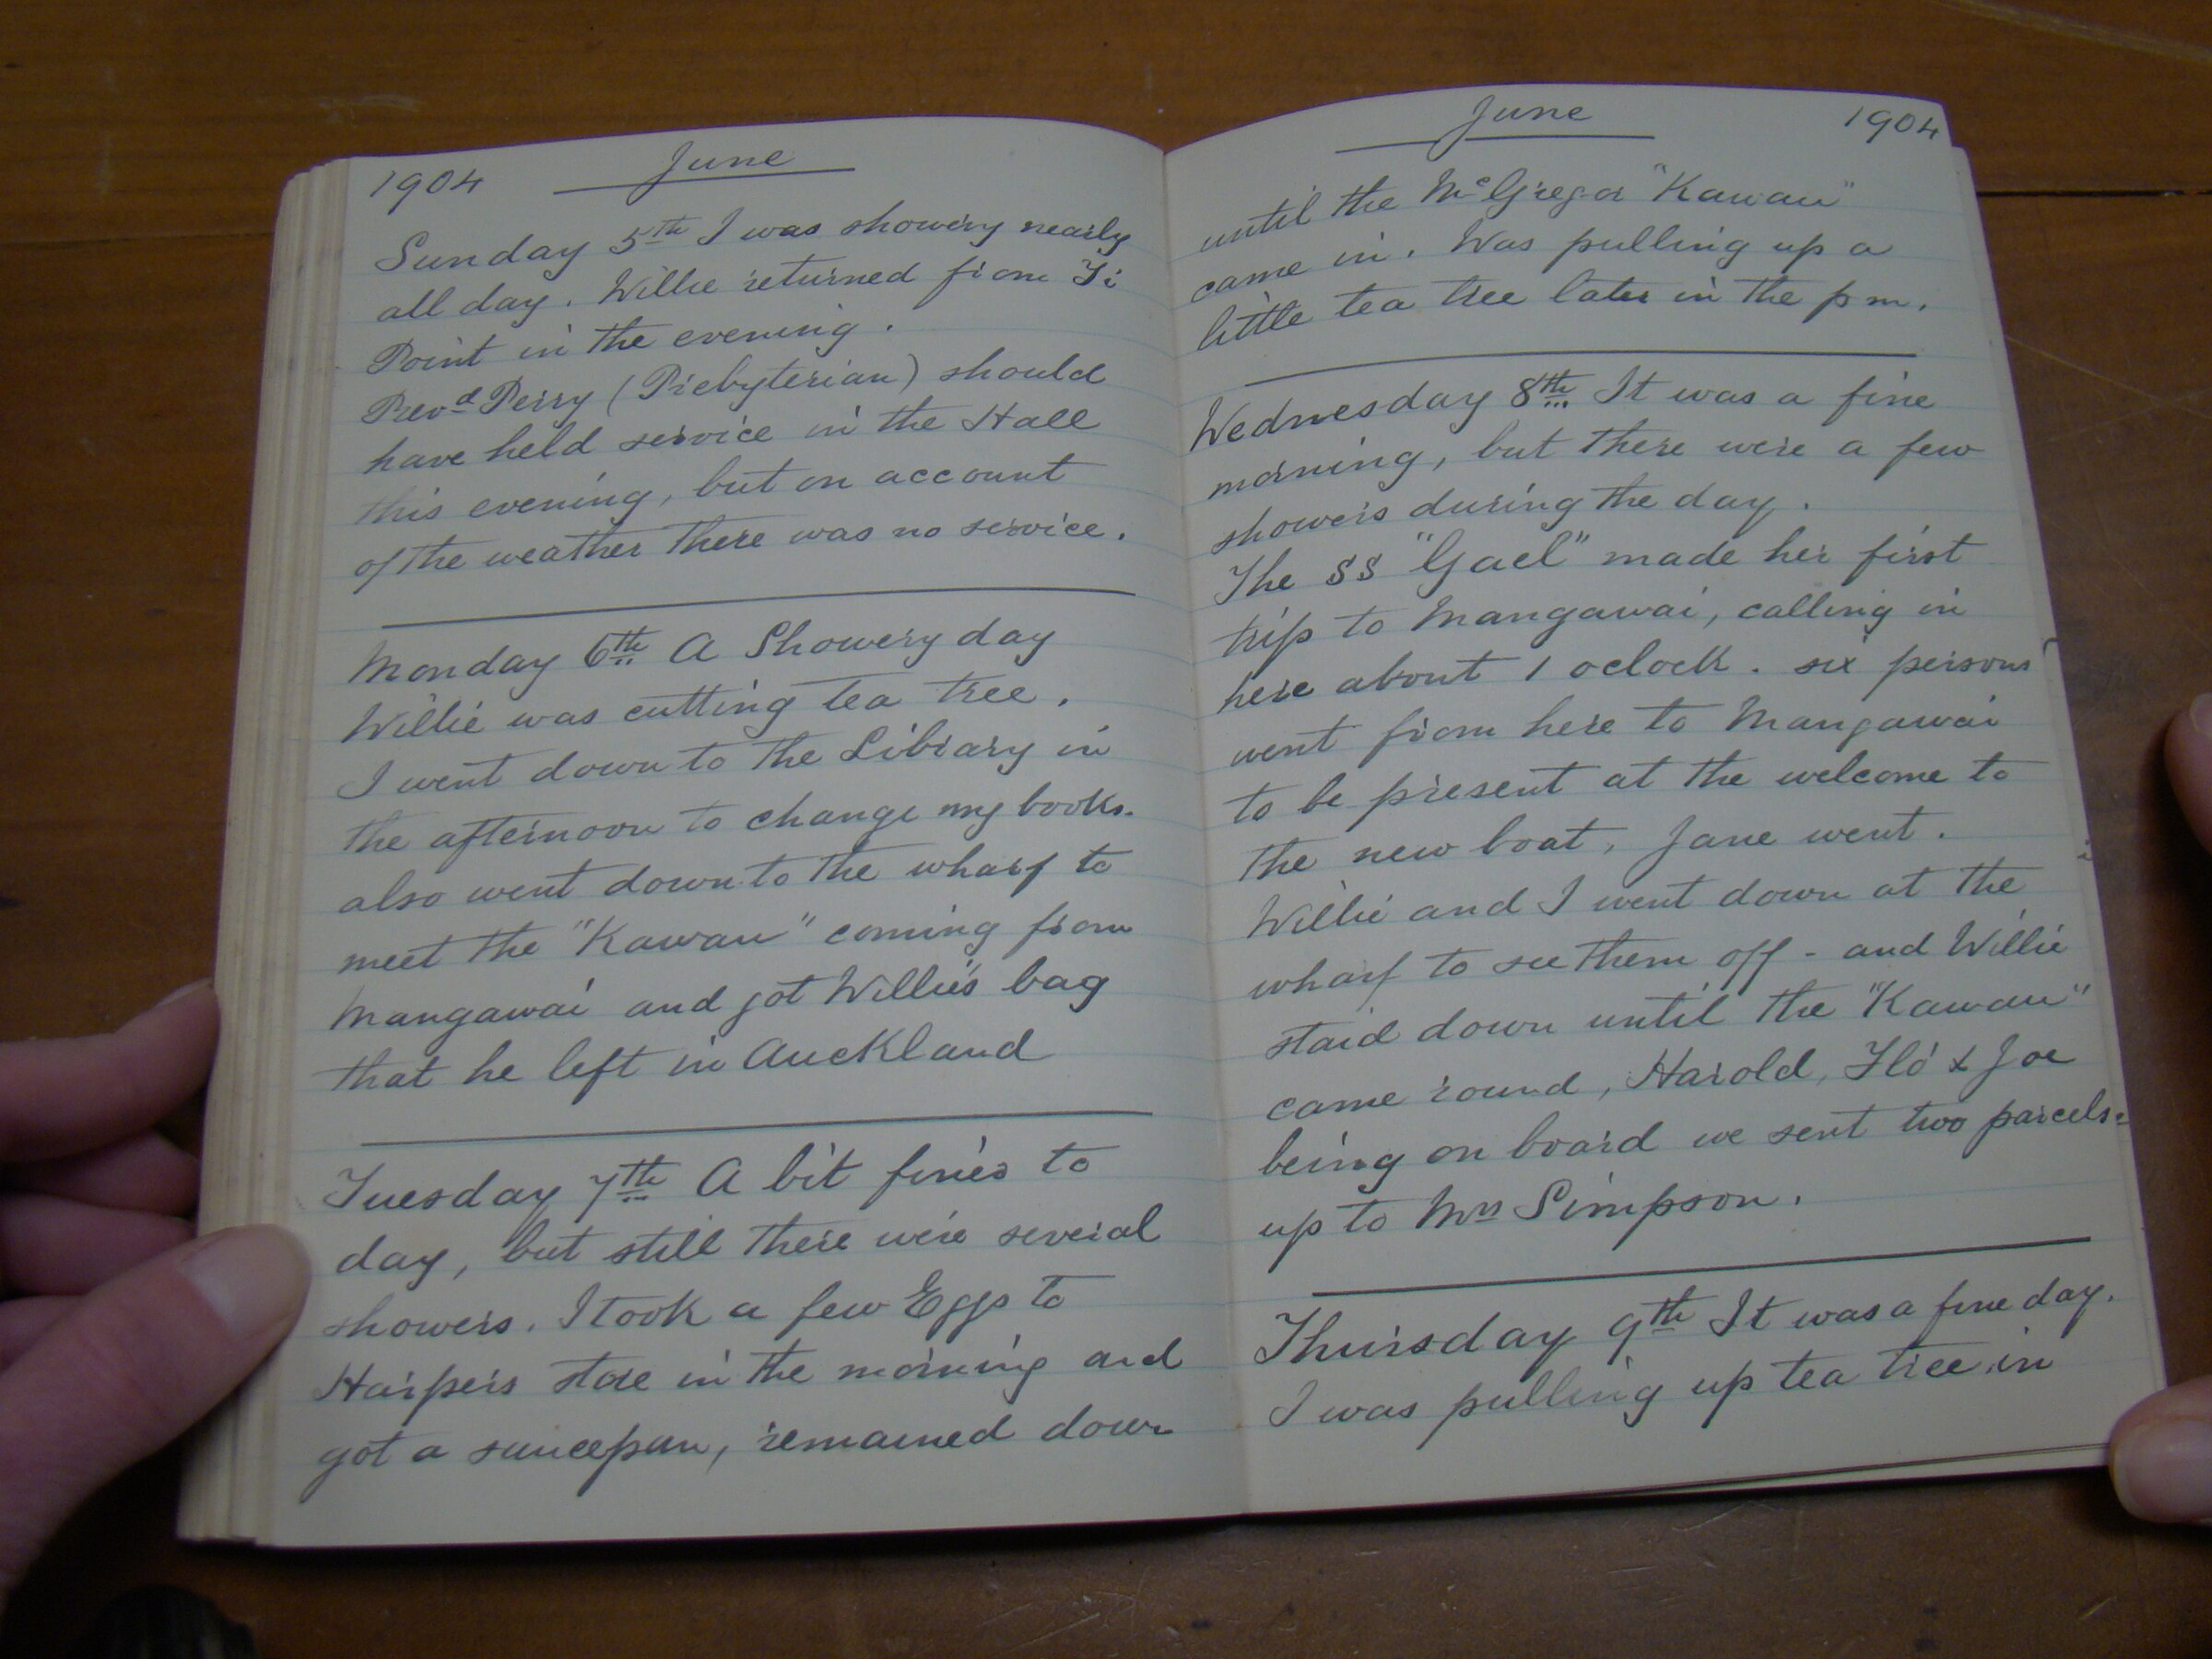 1904 June
Sunday 5th I was showery nearly
all day. Willie returned from Ti
Point in the evening.
Revd Perry (Presbyterian) should
have held service in the Hall
this evening, but on account
of the weather there was no service.
Monday 6th A Showery day
Willie was cutting tea tree.
I went down to the Library in
the afternoon to change my books.
also went down to the wharf to
meet the "Kawau" coming from
Mangawai and got Willie's bag
that he left in Auckland
Tuesday 7th A bit finer to
day, but still there were several
showers. I took a few Eggs to
Harpers store in the morning and
got a saucepan, remained down
June 1904
until the McGregor "Kawau"
came in. Was pulling up a
little tea tree later in the pm.
Wednesday 8th It was a fine
morning, but there were a few
showers during the day.
The SS "Gael" made her first
trip to Mangawai, calling in
here about 1 oclock. six persons
went from here to Mangawai
to be present at the welcome to
the new boat, Jane went.
Willie and I went down at the
wharf to see them off - and Willie
staid down until the "Kawau"
came round, Harold, Flo & Joe
being on board we sent two parcels
up to Mrs Simpson.
Thursday 9th It was a fine day.
I was pulling up tea tree in